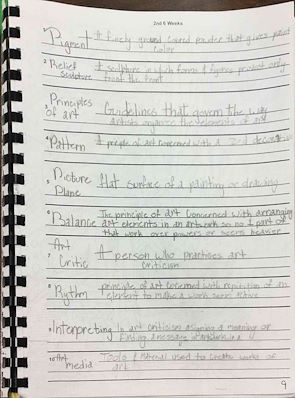 2nd 6 Weeks
1. Pigment A finely ground colored powder that gives paint
color
2. Relief A sculpture in which forms & figures project only
Sculpture from the front
3. Principles
of art Guidelines that govern the way
artists organize the elements of art
4. Pattern A principle of art concerned with a 2nd decorative
5. Picture
Plane flat surface of a painting or drawing
6. Balance The principle of art Concerned with arranging
art elements in an artwork so no 1 part of
that work over powers or seems heavier
7. Art
Critic A person who practices art
criticism
8. Rythm principle of art concerned with repitition of an
element to make a work seem active
9. Interpreting In art criticism assigning a meaning or
finding a message
10. Art
media Tools & Material used to create works of
art
9